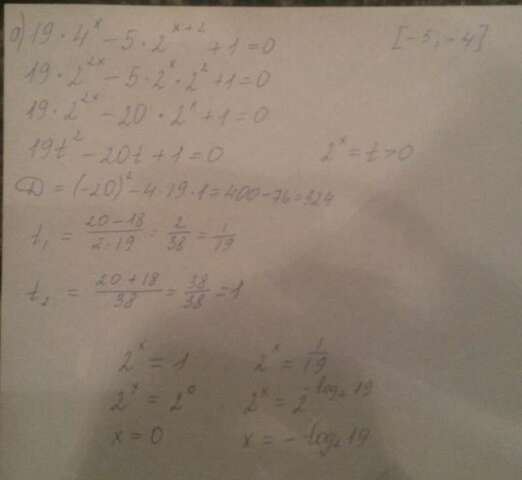 а) 19 · 4^x − 5 · 2^(x+2) + 1 = 0 [−5, −4]
19 · 2^(2x) − 5 · 2^x · 2^2 + 1 = 0
19 · 2^(2x) − 20 · 2^x + 1 = 0
19t^2 − 20t + 1 = 0 2^x = t > 0
D = (−20)^2 − 4 · 19 · 1 = 400 − 76 = 324
t₁ = (20 − 18)/(2 · 19) = 2/38 = 1/19
t₂ = (20 + 18)/38 = 38/38 = 1
2^x = 1 2^x = 1/19
2^x = 2^0 2^x = 2^(−log₂ 19)
x = 0 x = − log₂ 19